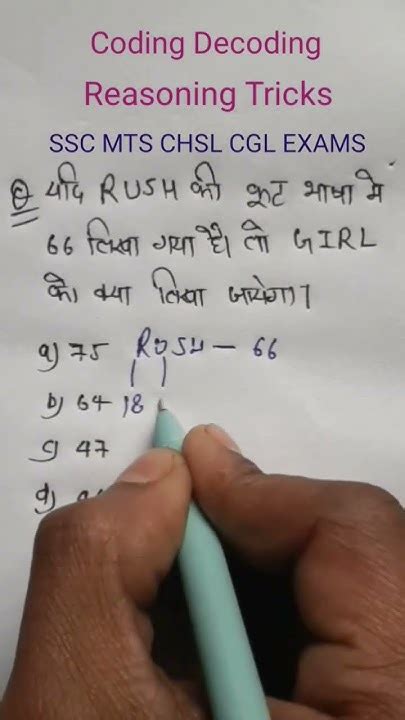 Coding Decoding
Reasoning Tricks
SSC MTS CHSL CGL EXAMS
Q यदि RUSH की कूट भाषा में
66 लिखा गया है। तो GIRL
को क्या लिखा जायेगा।
a) 75 RUSH - 66
b) 64 18
c) 47
d)